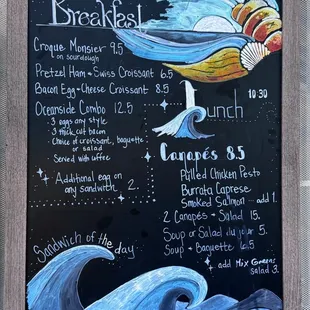 Breakfast
Croque Monsier 9.5
on sourdough
Pretzel Ham + Swiss Croissant 6.5
Bacon Egg + Cheese Croissant 8.5
Oceanside Combo 12.5
- 3 eggs any style
- 3 thick cut bacon
- Choice of croissant, baguette
or salad
Served with coffee
+ Additional egg on
any sandwich 2.
Lunch 10:30
Canapés 8.5
Pulled Chicken Pesto
Burrata Caprese
Smoked Salmon - add 1.
2 Canapés + Salad 15.
Soup or Salad du jour 5.
Soup + Baguette 6.5
+ add Mix Greens
salad 3.
Sandwich of the day